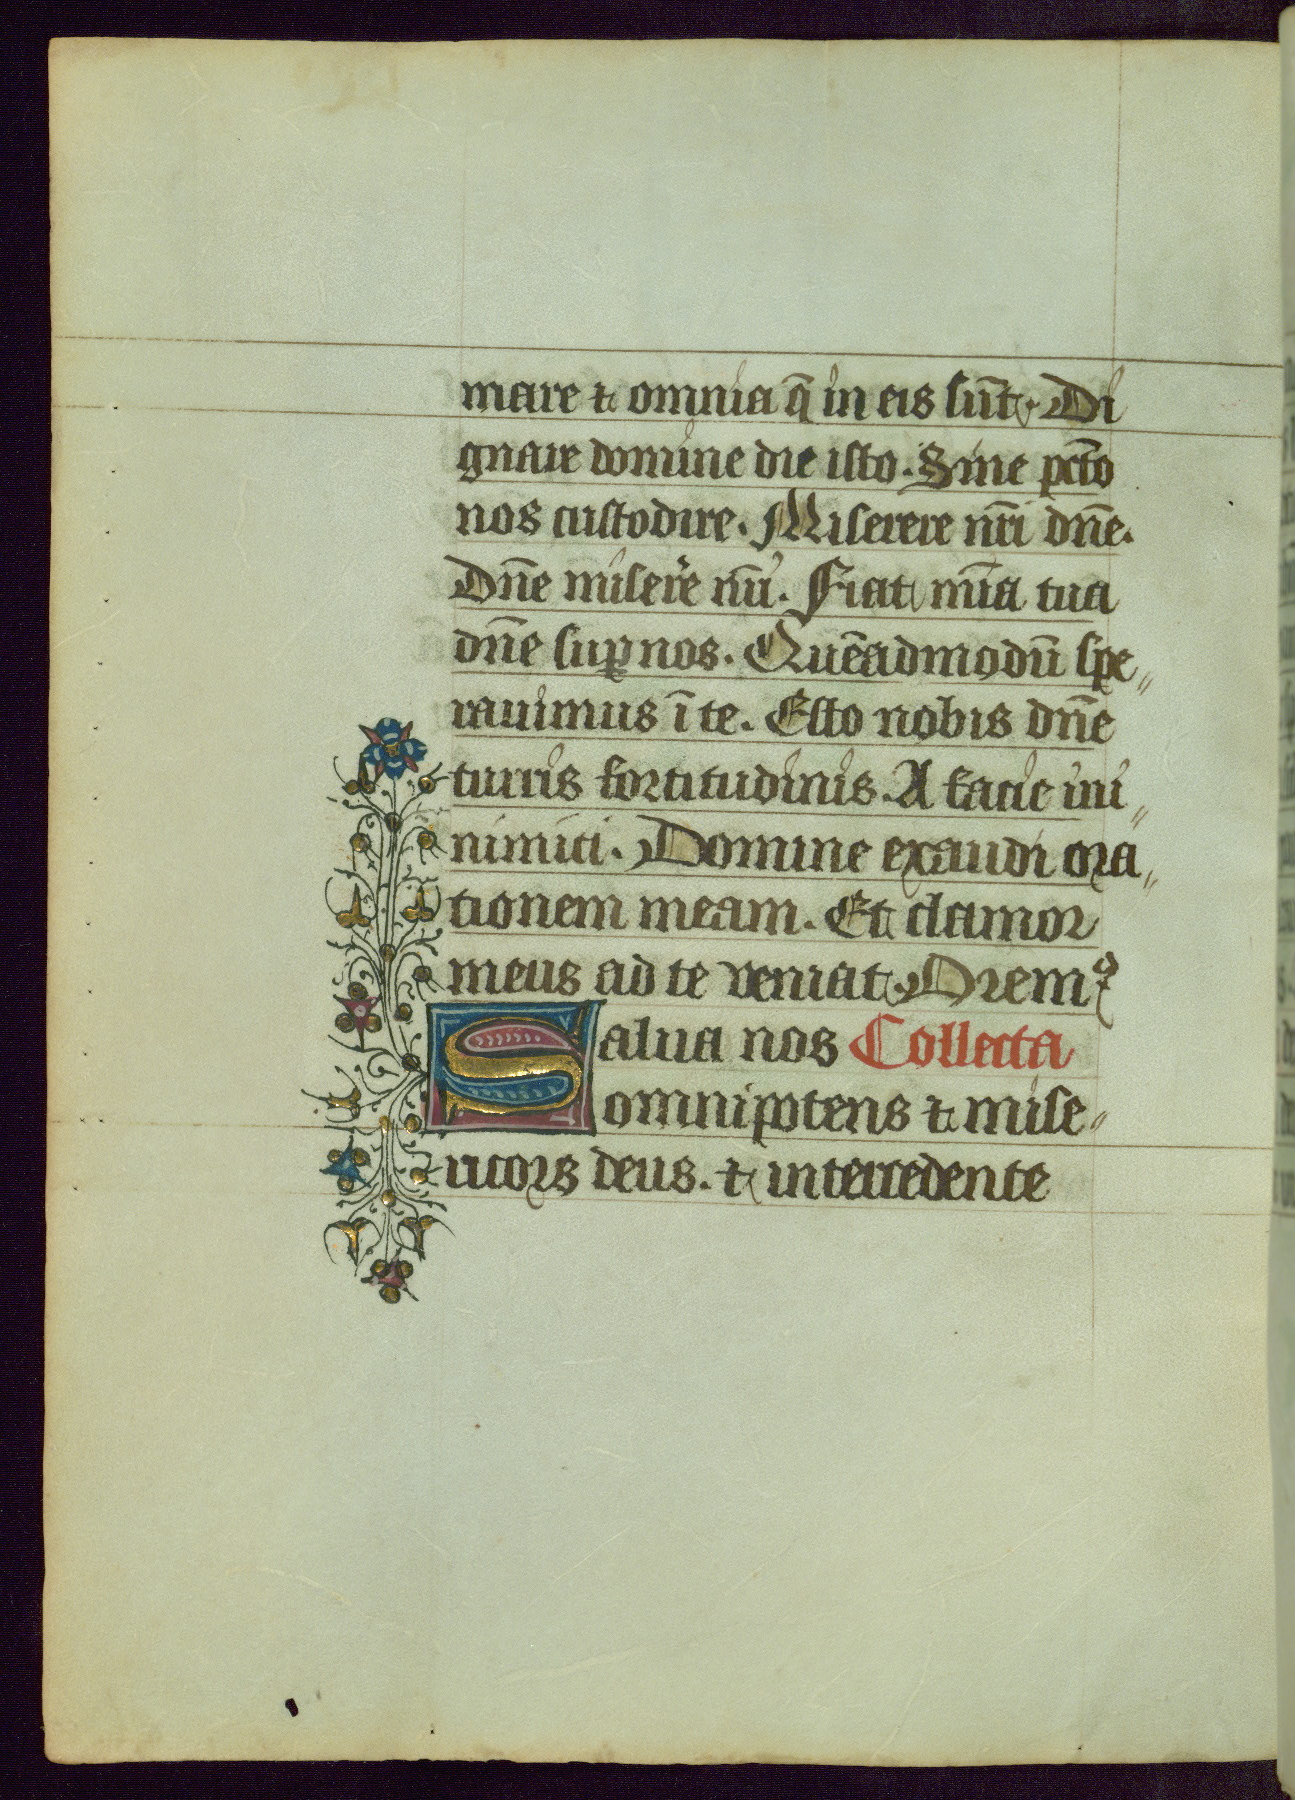 mare ⁊ omnia q̄ in eis sūt. Di
gnare domine die isto. Sine pcc̄to
nos custodire. Miserere nr̄i dn̄e.
Dn̄e miser̄e nr̄i. Fiat mīa tua
dn̄e suꝑ nos. Quēadmodū spe„
rauimus ī te. Esto nobis dn̄e
turris fortitudinis. A facie ini„
nimici. Domine exaudi ora„
tionem meam. Et clamor
meus ad te veniat. Oremꝰ
Salua nos Collecta
omnipotens ⁊ mise„
ricors deus. ⁊ intercedente